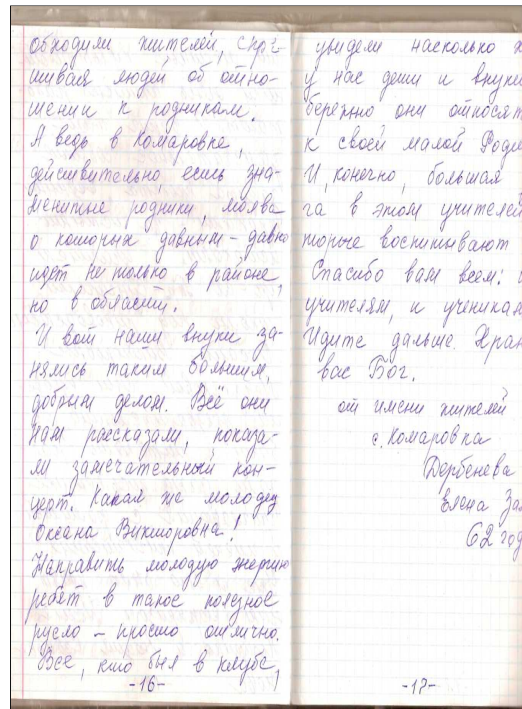 обходили жителей, спра-
шивая людей об отно-
шении к родникам.
А ведь в Комаровке,
действительно, есть зна-
менитые родники, молва
о которых давным-давно
идет не только в районе,
но в области.
И вот наши внуки за-
нялись таким большим,
добрым делом. Всё они
нам рассказали, показа-
ли замечательный кон-
церт. Какая же молодец
Оксана Викторовна!
Направить молодую энергию
ребят в такое полезное
русло - просто отлично.
Все, кто был в клубе,
-16-
увидели насколько х
у нас дети и внуки
бережно они относят
к своей малой Роди
И, конечно, большая
га в этом учителей
торые воспитывают
Спасибо вам всем: и
учителям, и ученикам
Идите дальше. Хран
вас Бог.
от имени жителей
с. Комаровка
Дербенева
Елена За
62 год
-17-